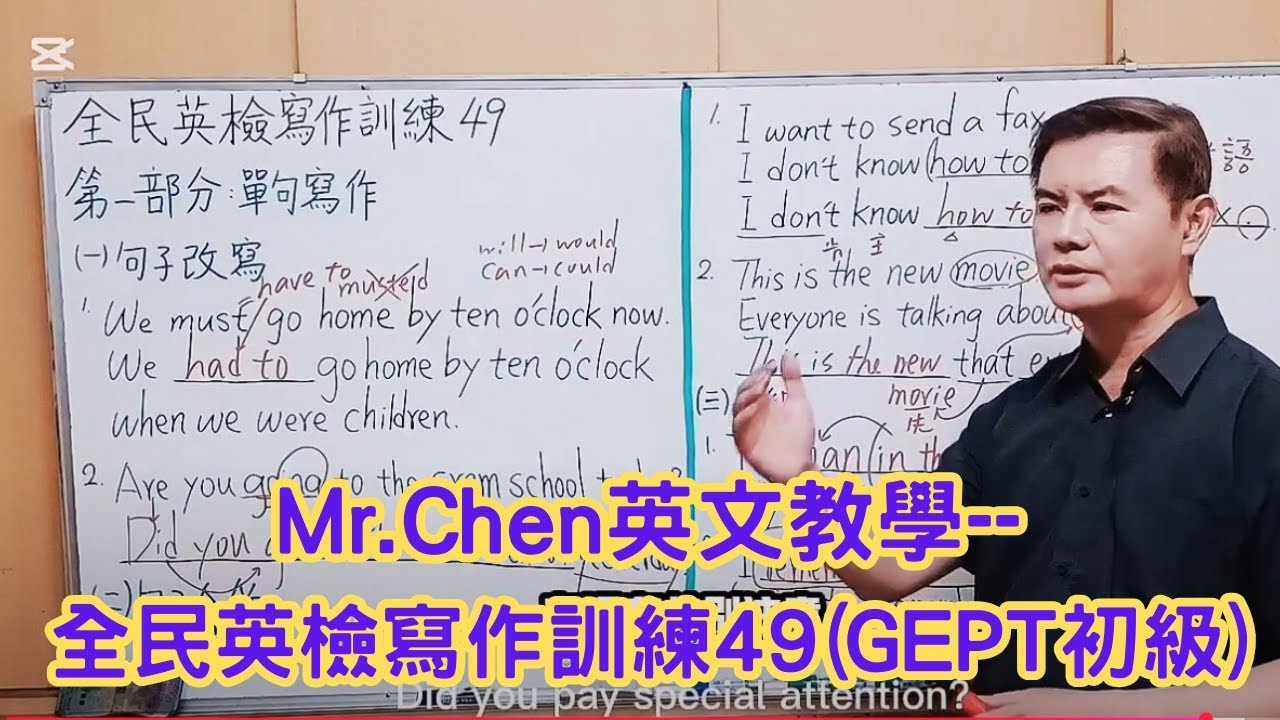 全民英檢寫作訓練49
第一部分:單句寫作
(一)句子改寫
will→would
can→could
have to
musted
1. We must go home by ten o'clock now.
We had to go home by ten o'clock
when we were children.
2. Are you going to the cram school
Did you
1. I want to send a fax
I don't know (how to
I don't know how to
2. This is the new movie
Everyone is talking about
This is the new that
movie
(三)
1.
in th
Mr.Chen英文教學--
全民英檢寫作訓練49(GEPT初級)
Did you pay special attention?